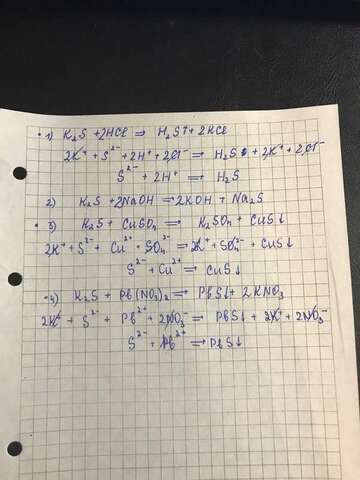 1) K₂S + 2HCl ⇒ H₂S↑ + 2KCl
2K⁺ + S²⁻ + 2H⁺ + 2Cl⁻ = H₂S + 2K⁺ + 2Cl⁻
S²⁻ + 2H⁺ = H₂S
2) K₂S + 2NaOH = 2KOH + Na₂S
3) K₂S + CuSO₄ = K₂SO₄ + CuS↓
2K⁺ + S²⁻ + Cu²⁺ + SO₄²⁻ = 2K⁺ + SO₄²⁻ + CuS↓
S²⁻ + Cu²⁺ = CuS↓
4) K₂S + Pb(NO₃)₂ = PbS↓ + 2KNO₃
2K⁺ + S²⁻ + Pb²⁺ + 2NO₃⁻ = PbS↓ + 2K⁺ + 2NO₃⁻
S²⁻ + Pb²⁺ = PbS↓